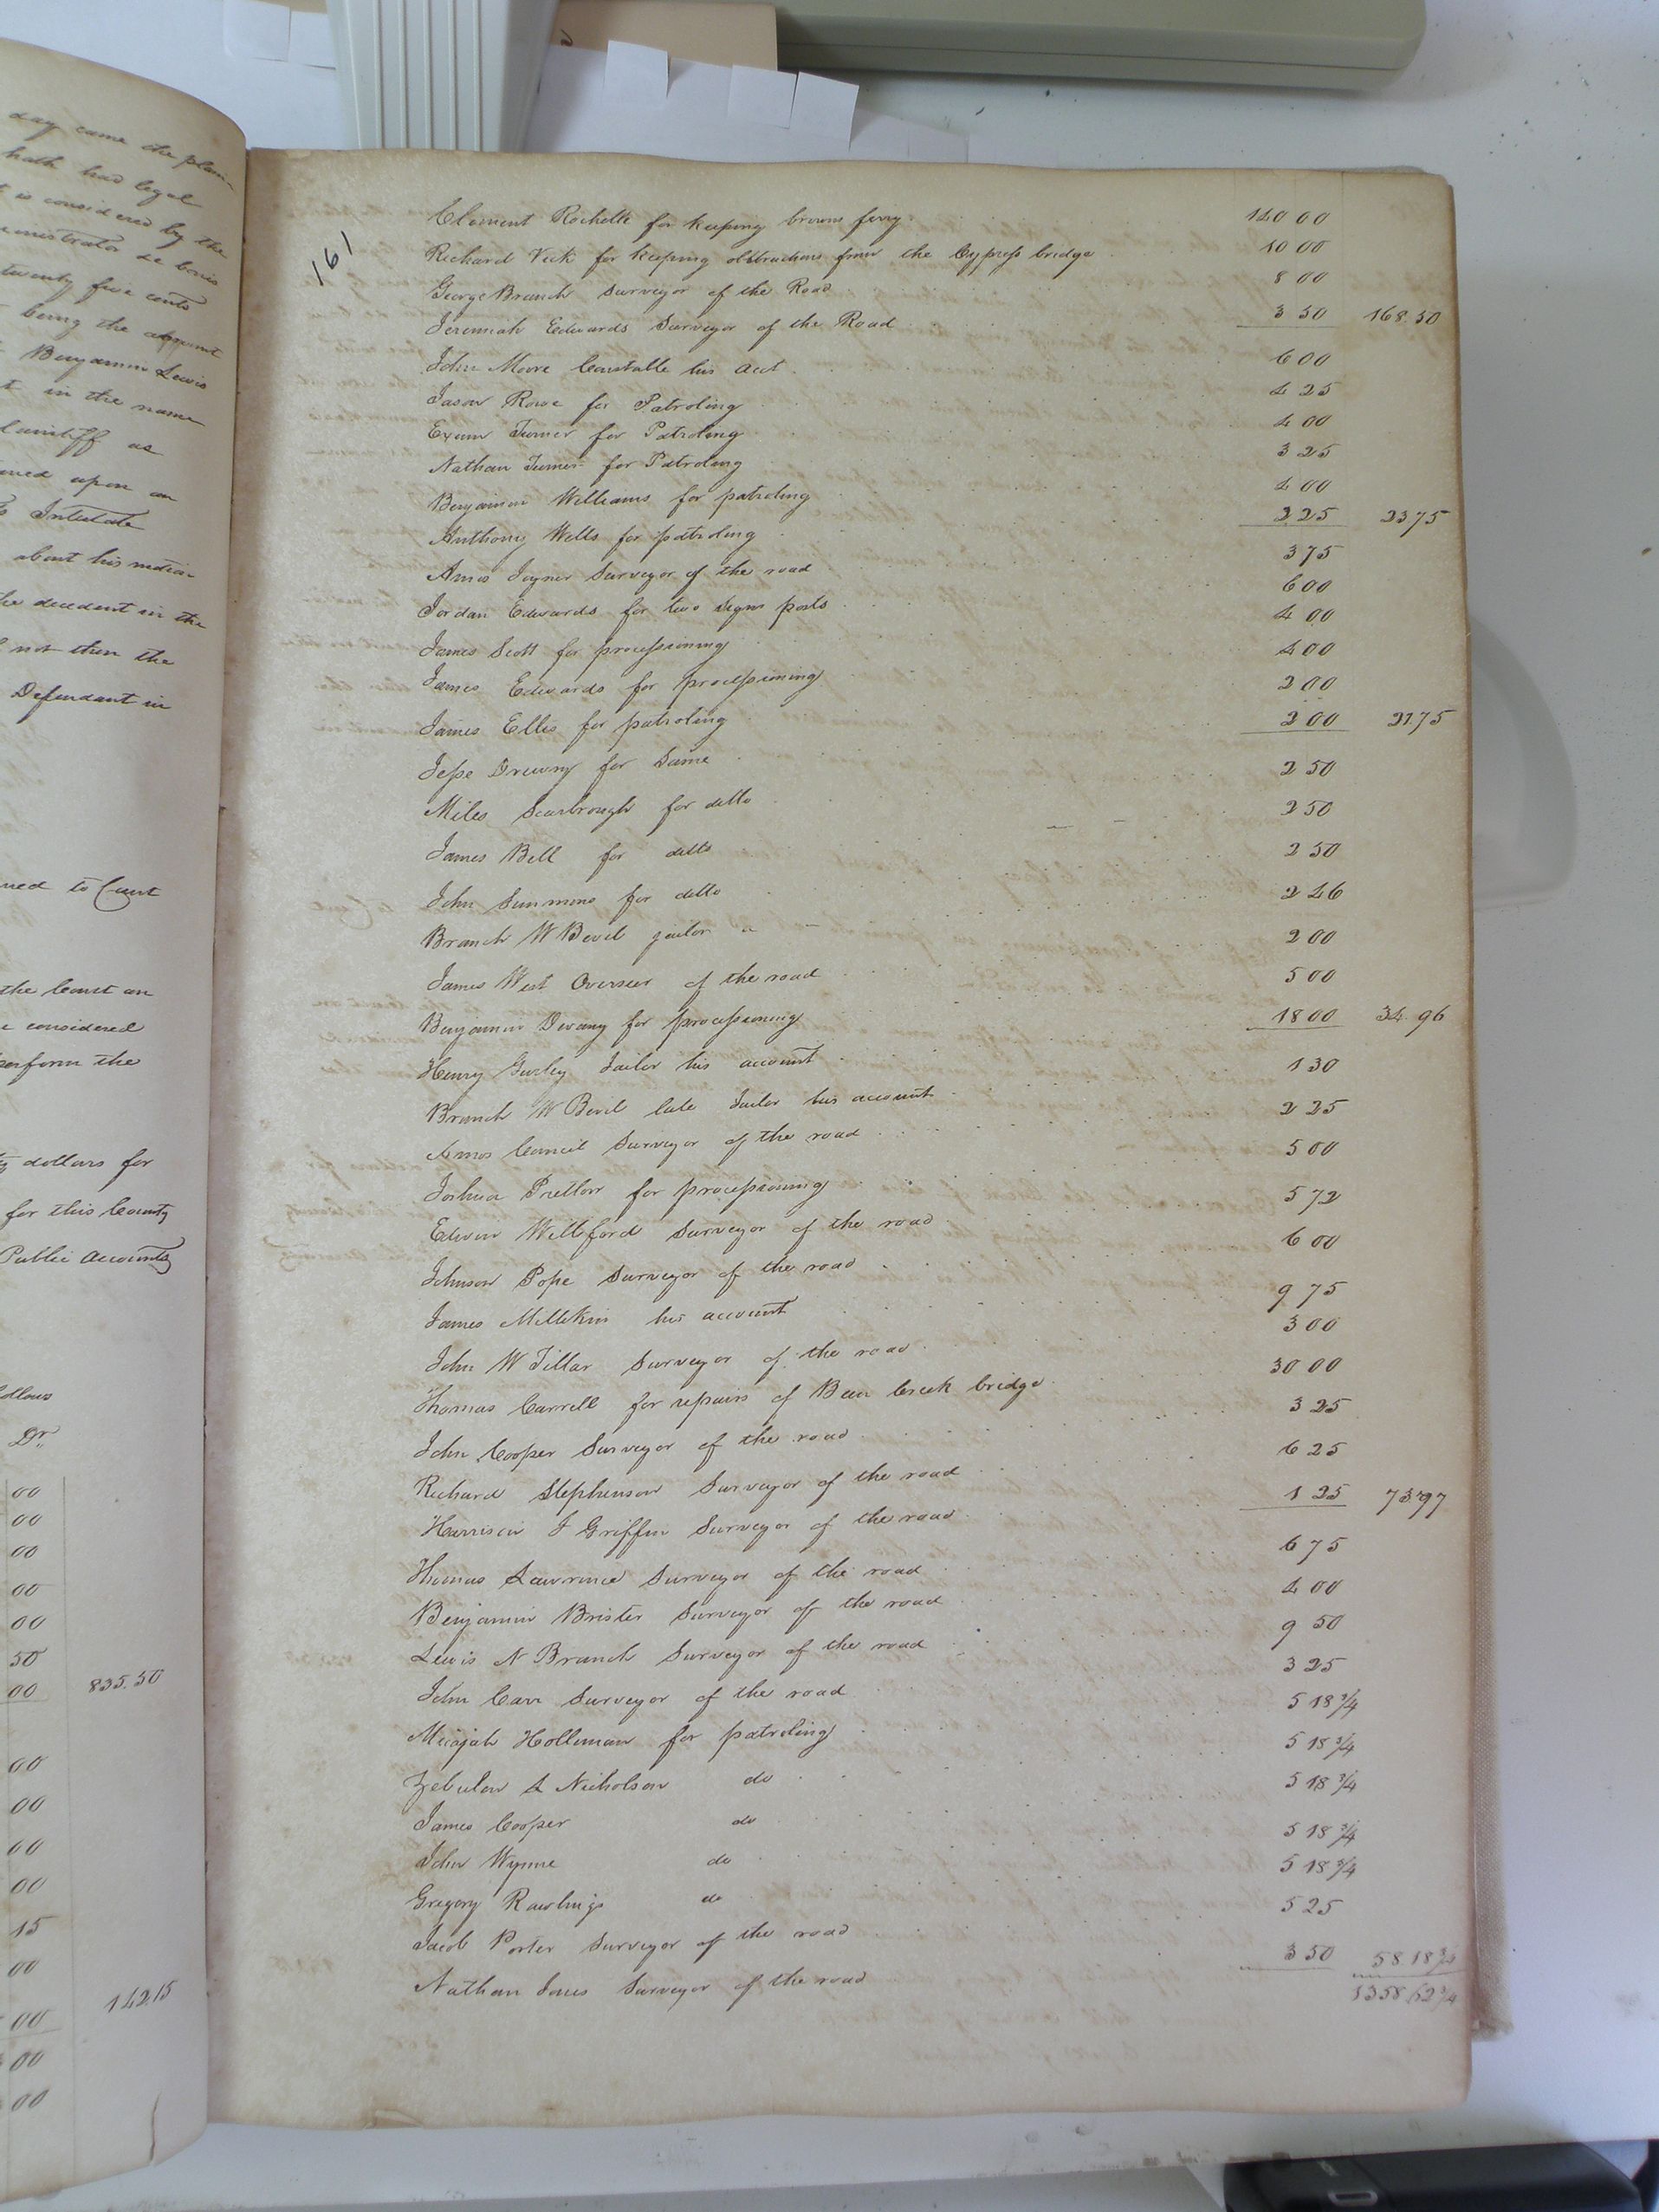 day came the plain-
hath had legal
is considered by the
ministrator de bonis
twenty five cents
being the amount
Benjamin Lewis
in the name
laintiff as
upon an
Intestate
about his
he decedent in the
not then the
Defendant in
ned to Court
the Court an
considered
perform the
dollars for
for this County
Public Accounts
ollows
Dr
00
00
00
00
00
50
00 835.50
00
00
00
00
15
00
00 142.15
00
00
161
Clement Rochelle for keeping browns ferry 140 00
Richard Vick for keeping obstructions from the Cypress bridge 10 00
George Branch Surveyor of the Road 8 00
Jeremiah Edwards Surveyor of the Road 3 50 168.50
John Moore Constable his acct 6 00
Jason Rowe for Patroling 4 25
Exum Turner for Patroling 4 00
Nathan Turner for Patroling 3 25
Benjamin Williams for patroling 4 00
Anthony Wells for patroling 2 25 23 75
Amos Joyner Surveyor of the road 3 75
Jordan Edwards for two signs posts 6 00
James Scott for processioning 4 00
James Edwards for processioning 4 00
James Ellis for patroling 2 00
Jesse Drewry for Same 2 00 21.75
Miles Scarbrough for ditto 2 50
James Bell for ditto 2 50
John Simmons for ditto 2 50
Branch W Bevil jailor " 2 46
James West Overseer of the road 2 00
Benjamin Devany for processioning 5 00
Henry Gurley Jailor his account 18 00 34.96
Branch W Bevil late Jailor his account 1 30
Amos Council Surveyor of the road 2 25
Joshua Pretlow for processioning 5 00
Edwin Williford Surveyor of the road 5 72
Johnson Pope Surveyor of the road 6 00
James Millikin his account 9 75
John W Tillar Surveyor of the road 3 00
Thomas Carrell for repairs of Creek bridge 30 00
John Cooper Surveyor of the road 3 25
Richard Stephenson Surveyor of the road 6 25
Harrison J Griffin Surveyor of the road 1 25 73.97
Thomas Lawrence Surveyor of the road 6 75
Benjamin Brister Surveyor of the road 4 00
Lewis N Branch Surveyor of the road 9 50
John Carr Surveyor of the road 3 25
Micajah Holleman for patroling 5 18 3/4
Zebulon A Nicholson do 5 18 3/4
James Cooper do 5 18 3/4
John Wynne do 5 18 3/4
Gregory Rawlings do 5 18 3/4
Jacob Porter Surveyor of the road 5 25
Nathan Jones Surveyor of the road 3 50 58.18 3/4
1358.62 3/4